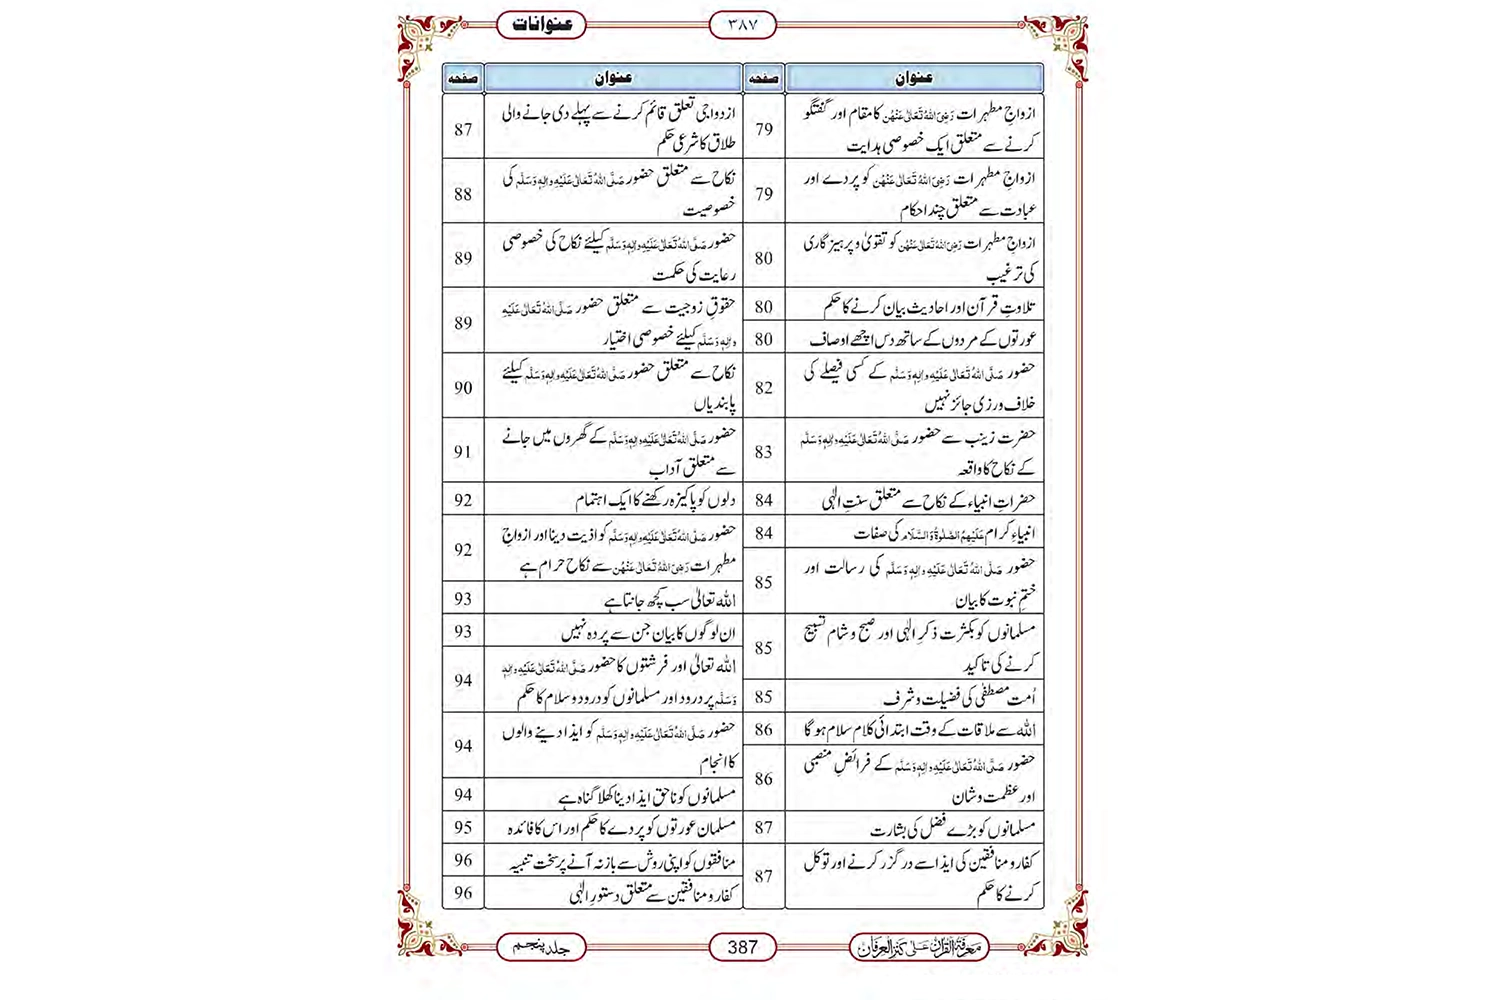 ۳۸۷
عنوانات
عنوان
صفحہ
عنوان
صفحہ
ازواجِ مطہرات رَضِیَ اللہُ تَعَالٰی عَنْھُن کا مقام اور گفتگو
کرنے سے متعلق ایک خصوصی ہدایت
79
ازواجِ مطہرات رَضِیَ اللہُ تَعَالٰی عَنْھُن کو پردے اور
عبادت سے متعلق چند احکام
79
ازواجِ مطہرات رَضِیَ اللہُ تَعَالٰی عَنْھُن کو تقویٰ و پرہیزگاری
کی ترغیب
80
تلاوتِ قرآن اور احادیث بیان کرنے کا حکم
80
عورتوں کے مردوں کے ساتھ دس اچھے اوصاف
80
حضور صَلَّی اللہُ تَعَالٰی عَلَیْہِ واٰلِہٖ وَسَلَّم کے کسی فیصلے کی
خلاف ورزی جائز نہیں
82
حضرت زینب سے حضور صَلَّی اللہُ تَعَالٰی عَلَیْہِ واٰلِہٖ وَسَلَّم
کے نکاح کا واقعہ
83
حضراتِ انبیاء کے نکاح سے متعلق سنتِ الٰہی
84
انبیاءِ کرام عَلَیْہِمُ الصَّلٰوۃُ وَالسَّلَام کی صفات
84
حضور صَلَّی اللہُ تَعَالٰی عَلَیْہِ واٰلِہٖ وَسَلَّم کی رسالت اور
ختمِ نبوت کا بیان
85
مسلمانوں کو بکثرت ذکرِ الٰہی اور صبح و شام تسبیح
کرنے کی تاکید
85
اُمت مصطفٰی کی فضیلت و شرف
85
اللہ سے ملاقات کے وقت ابتدائی کلام سلام ہو گا
86
حضور صَلَّی اللہُ تَعَالٰی عَلَیْہِ واٰلِہٖ وَسَلَّم کے فرائضِ منصبی
اور عظمت و شان
86
مسلمانوں کو بڑے فضل کی بشارت
87
کفار و منافقین کی ایذا سے درگزر کرنے اور توکل
کرنے کا حکم
87
ازدواجی تعلق قائم کرنے سے پہلے دی جانے والی
طلاق کا شرعی حکم
87
نکاح سے متعلق حضور صَلَّی اللہُ تَعَالٰی عَلَیْہِ واٰلِہٖ وَسَلَّم کی
خصوصیت
88
حضور صَلَّی اللہُ تَعَالٰی عَلَیْہِ واٰلِہٖ وَسَلَّم کیلئے نکاح کی خصوصی
رعایت کی حکمت
89
حقوقِ زوجیت سے متعلق حضور صَلَّی اللہُ تَعَالٰی عَلَیْہِ
واٰلِہٖ وَسَلَّم کیلئے خصوصی اختیار
89
نکاح سے متعلق حضور صَلَّی اللہُ تَعَالٰی عَلَیْہِ واٰلِہٖ وَسَلَّم کیلئے
پابندیاں
90
حضور صَلَّی اللہُ تَعَالٰی عَلَیْہِ واٰلِہٖ وَسَلَّم کے گھروں میں جانے
سے متعلق آداب
91
دلوں کو پاکیزہ رکھنے کا ایک اہتمام
92
حضور صَلَّی اللہُ تَعَالٰی عَلَیْہِ واٰلِہٖ وَسَلَّم کو اذیت دینا اور ازواجِ
مطہرات رَضِیَ اللہُ تَعَالٰی عَنْھُن سے نکاح حرام ہے
92
اللہ تعالیٰ سب کچھ جانتا ہے
93
ان لوگوں کا بیان جن سے پردہ نہیں
93
اللہ تعالیٰ اور فرشتوں کا حضور صَلَّی اللہُ تَعَالٰی عَلَیْہِ واٰلِہٖ
وَسَلَّم پر درود اور مسلمانوں کو درود و سلام کا حکم
94
حضور صَلَّی اللہُ تَعَالٰی عَلَیْہِ واٰلِہٖ وَسَلَّم کو ایذا دینے والوں
کا انجام
94
مسلمانوں کو ناحق ایذا دینا کھلا گناہ ہے
94
مسلمان عورتوں کو پردے کا حکم اور اس کا فائدہ
95
منافقوں کو اپنی روش سے باز نہ آنے پر سخت تنبیہ
96
کفار و منافقین سے متعلق دستورِ الٰہی
96
معرفۃ القرآن علی کنز العرفان
387
جلد پنجم